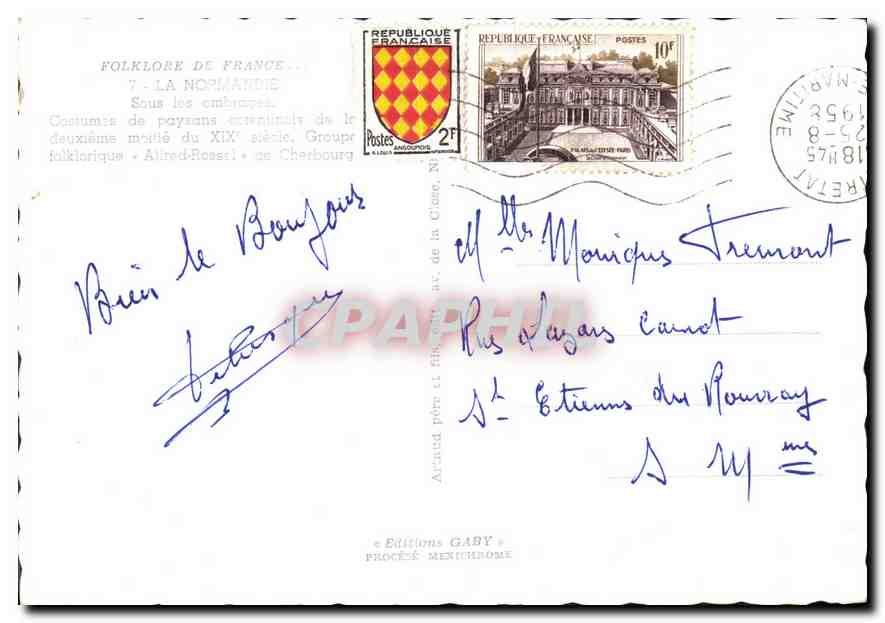 FOLKLORE DE FRANCE...
7 - LA NORMANDIE
Sous les ombrages.
Costumes de paysans cotentinais de la
deuxième moitié du XIXe siècle. Groupe
folklorique « Alfred-Rossel » de Cherbourg
REPUBLIQUE
FRANÇAISE
Postes 2F
ANGOUMOIS
REPUBLIQUE FRANÇAISE POSTES 10F
PALAIS DE L'ELYSÉE-PARIS
E-MARITIME
1958
25-8
18H45
ETRETAT
Bien le Bonjour
Mlle Monique Tremont
Rue Lazare Carnot
St Etienne du Rouvray
S Mme
CPAPHIL
Artaud père et fils, édit. av. de la Close, N
« Editions GABY »
PROCÉSÉ MEXICHROME